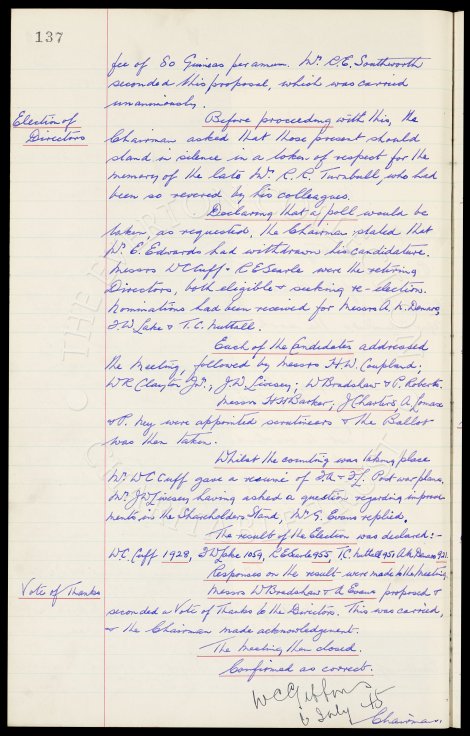 137
fee of 80 Guineas per annum. Mr. R.E. Southworth
seconded this proposal, which was carried
unanimously.
Election of
Directors
Before proceeding with this, the
Chairman asked that those present should
stand in silence in a token of respect for the
memory of the late Mr. R.R. Turnbull, who had
been so revered by his colleagues.
Declaring that a poll would be
taken, as requested, the Chairman stated that
Mr. E. Edwards had withdrawn his candidature.
Messrs W C Cuff & R E Searle were the retiring
Directors, both eligible & seeking re-election.
Nominations had been received for Messrs A. K. Denaro,
F.W. Lake & T.C. Nuttall.
Each of the Candidates addressed
the meeting, followed by Messrs H.W. Coupland;
W R Clayton Jnr.; J.W. Livesey; W Bradshaw & P. Roberts.
Messrs H H Barker, J Charters, A Lomax
& P. Ney were appointed scrutineers & the Ballot
was then taken.
Whilst the counting was taking place
Mr. W C Cuff gave a resumé of F.A & F.L. Post-war plans.
Mr. J W Livesey having asked a question regarding improve-
ments in the Shareholders Stand, Mr. G. Evans replied.
The result of the Election was declared:-
W C. Cuff 1928, F W Lake 1059, R E Searle 955, T.C. Nuttall 951 A K Denaro 921.
Responses on the result were made to the meeting.
Vote of Thanks
Messrs W Bradshaw & A Evans proposed &
seconded a Vote of Thanks to the Directors. This was carried,
& the Chairman made acknowledgement.
The Meeting then closed.
Confirmed as correct.
W C Gibbons
6 July 45
Chairman.